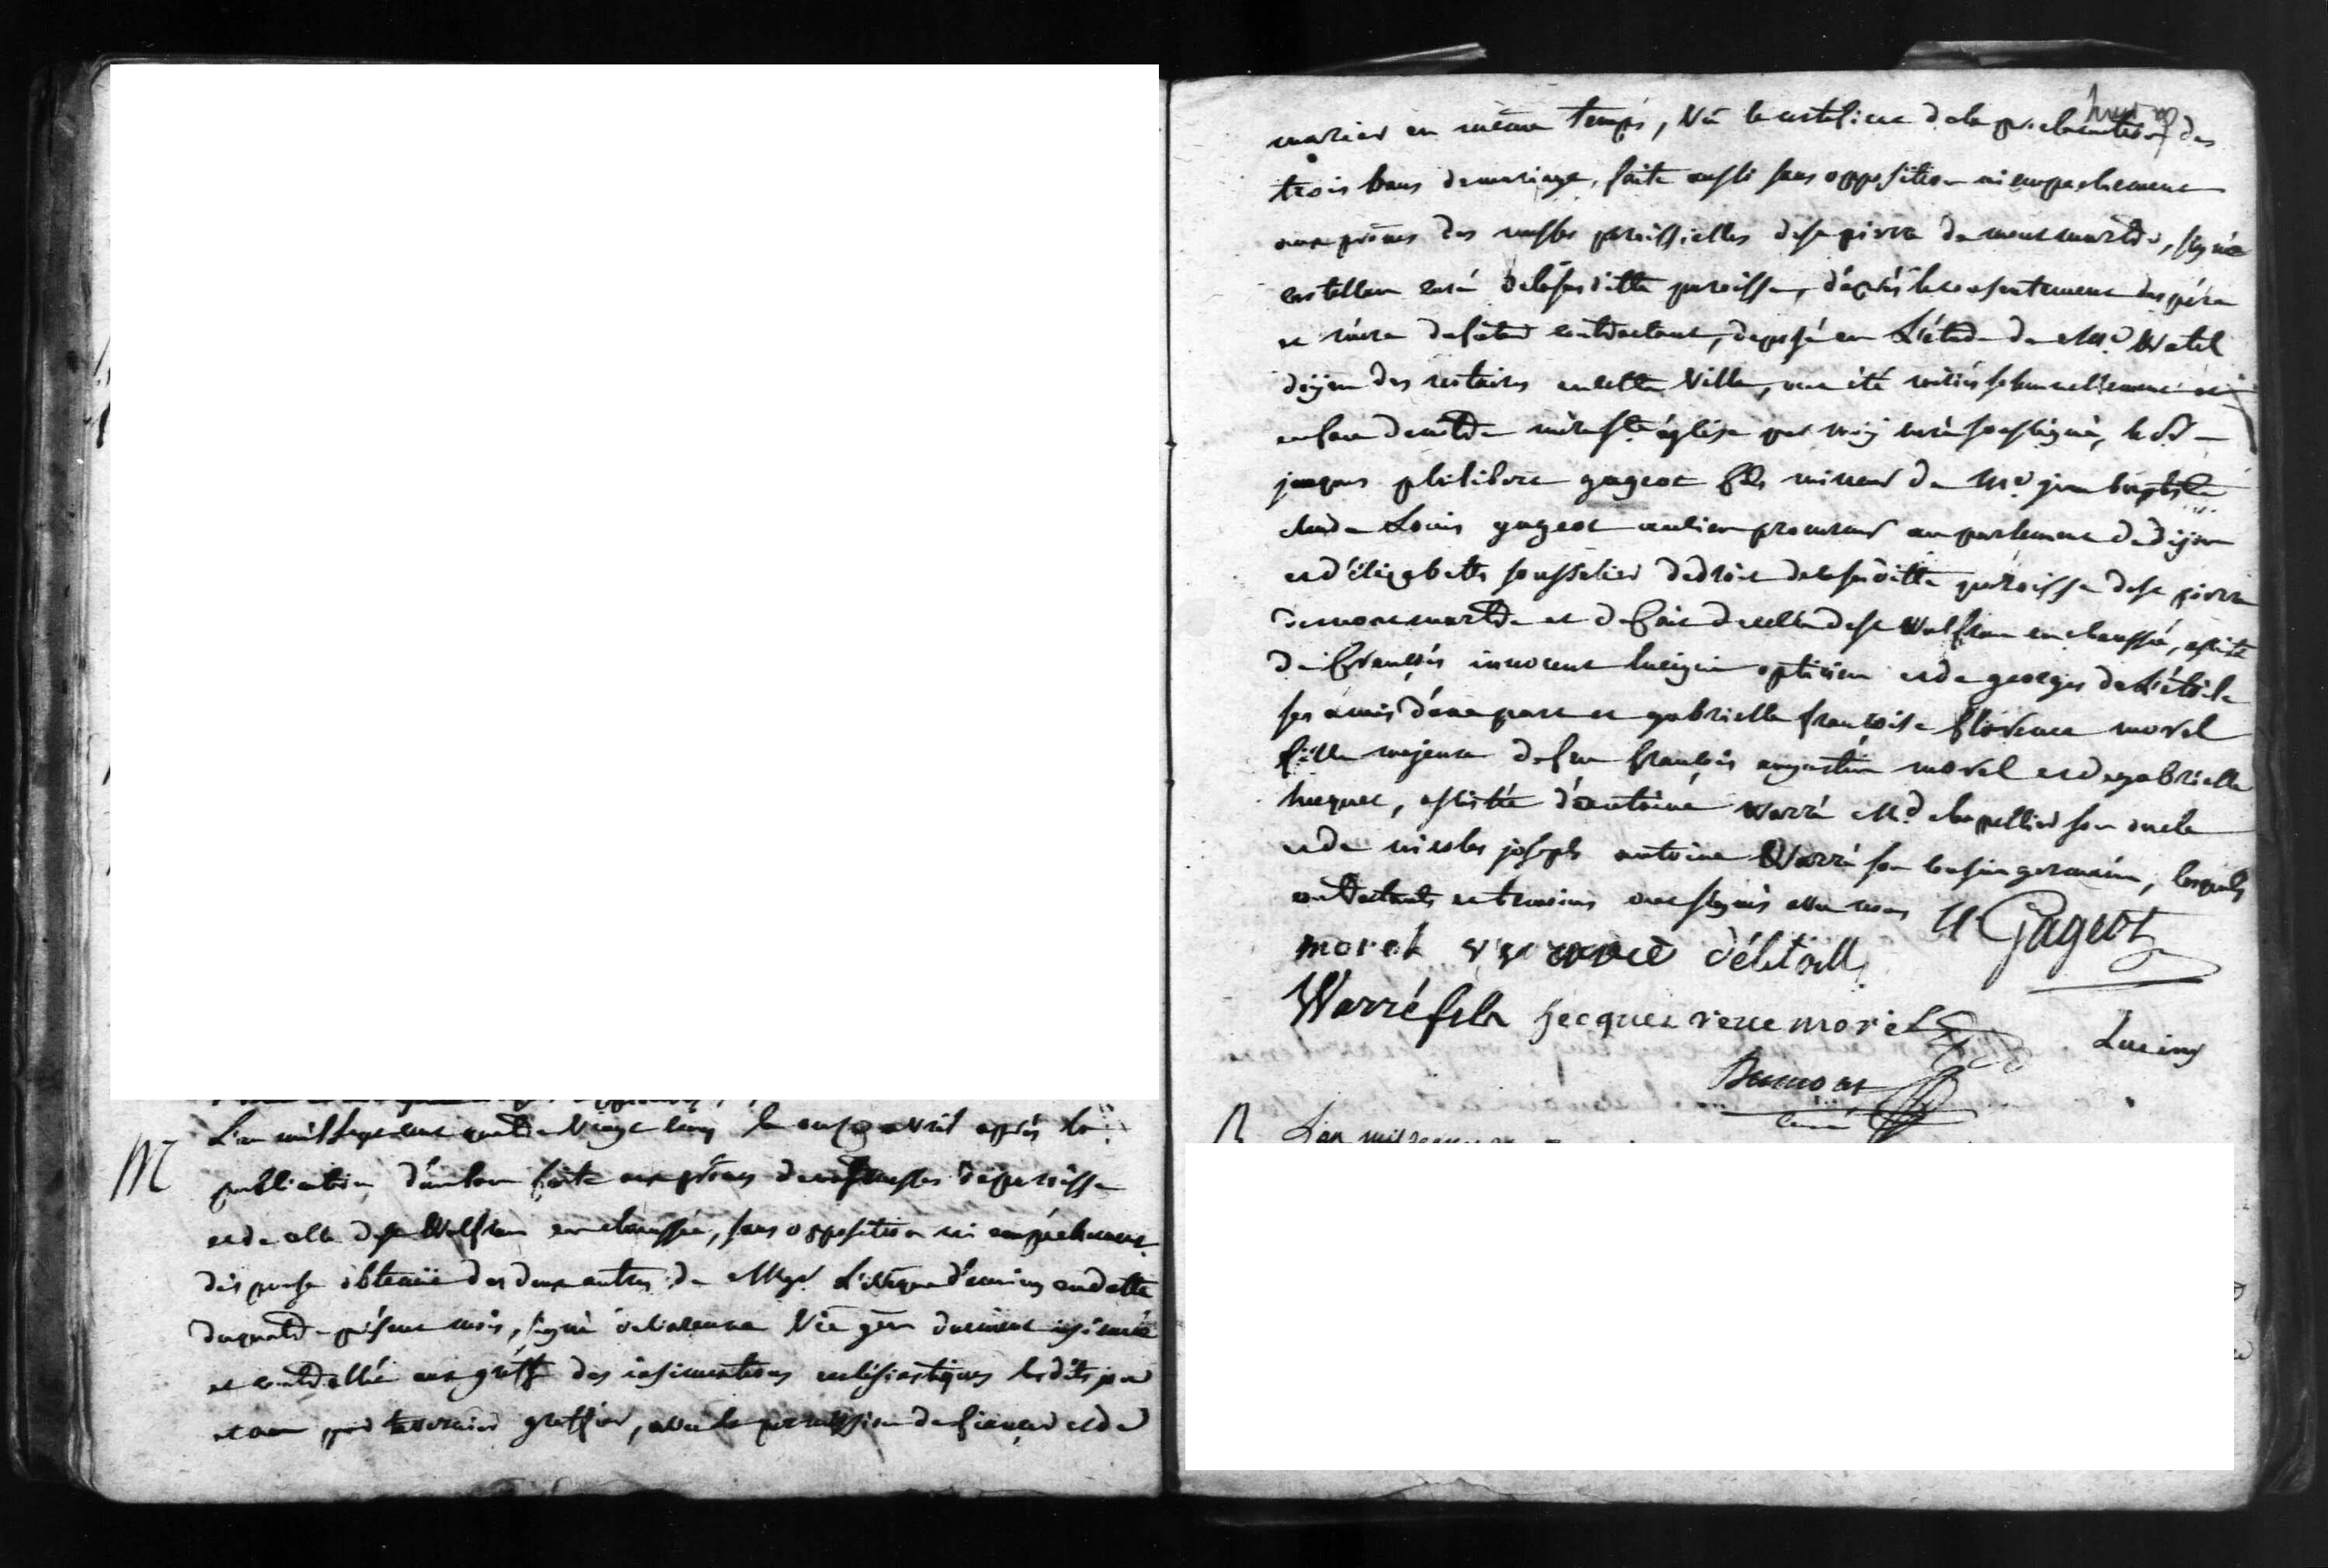 M
L'an mil sept cent quatre vingt cinq le onze avril après la
publication d'un ban faite aux prônes de nos messes de paroisse
et de celle de st Wulfran en chaussée, sans opposition ni empêchement
dispense obtenüe des deux autres de Mgr L'évêque d'amiens en datte
du quatre présent mois, signé vic gén duement insinuée
et controllée au greffe des insinuations ecclésiastiques lesdits jour
et an par greffier, avec la permission de fiancer et de
marier en même temps, Vû le certificat de la proclamation des
trois bans de mariage, faite aussi sans opposition ni empechement
aux prônes des messes paroissielles de st pierre de montmartre, signé
castellan curé de la susditte paroisse, d'après le consentement des père
et mère du futur contractant, deposé en L'étude de Me Watel
doÿen des notaires en cette Ville, ont été mariés solemnellement et
en face de notre mère ste église par moÿ curé soussigné, le Sr
jacques philibert gageot fils mineur de Me jean baptiste
claude Louis gageot ancien procureur au parlement de dijon
et d'élizabeth sousselier de droit de la susditte paroisse de st pierre
de montmartre et de fait de celle de st Wulfran en chaussée, assisté
de François innocent Luciny opticien et de georges de L'étoile
ses amis d'une part et gabrielle françoise florence morel
fille majeure de feu françois augustin morel et de gabrielle
huequet, assistée d'antoine Warré Md chapellier son oncle
et de nicolas joseph antoine Warré son cousin germain, lesquels
contractants et temoins ont signés avec nous Gageot
morel délétoille
Warré fils jacques rene morel Luciny
Dumont
curé